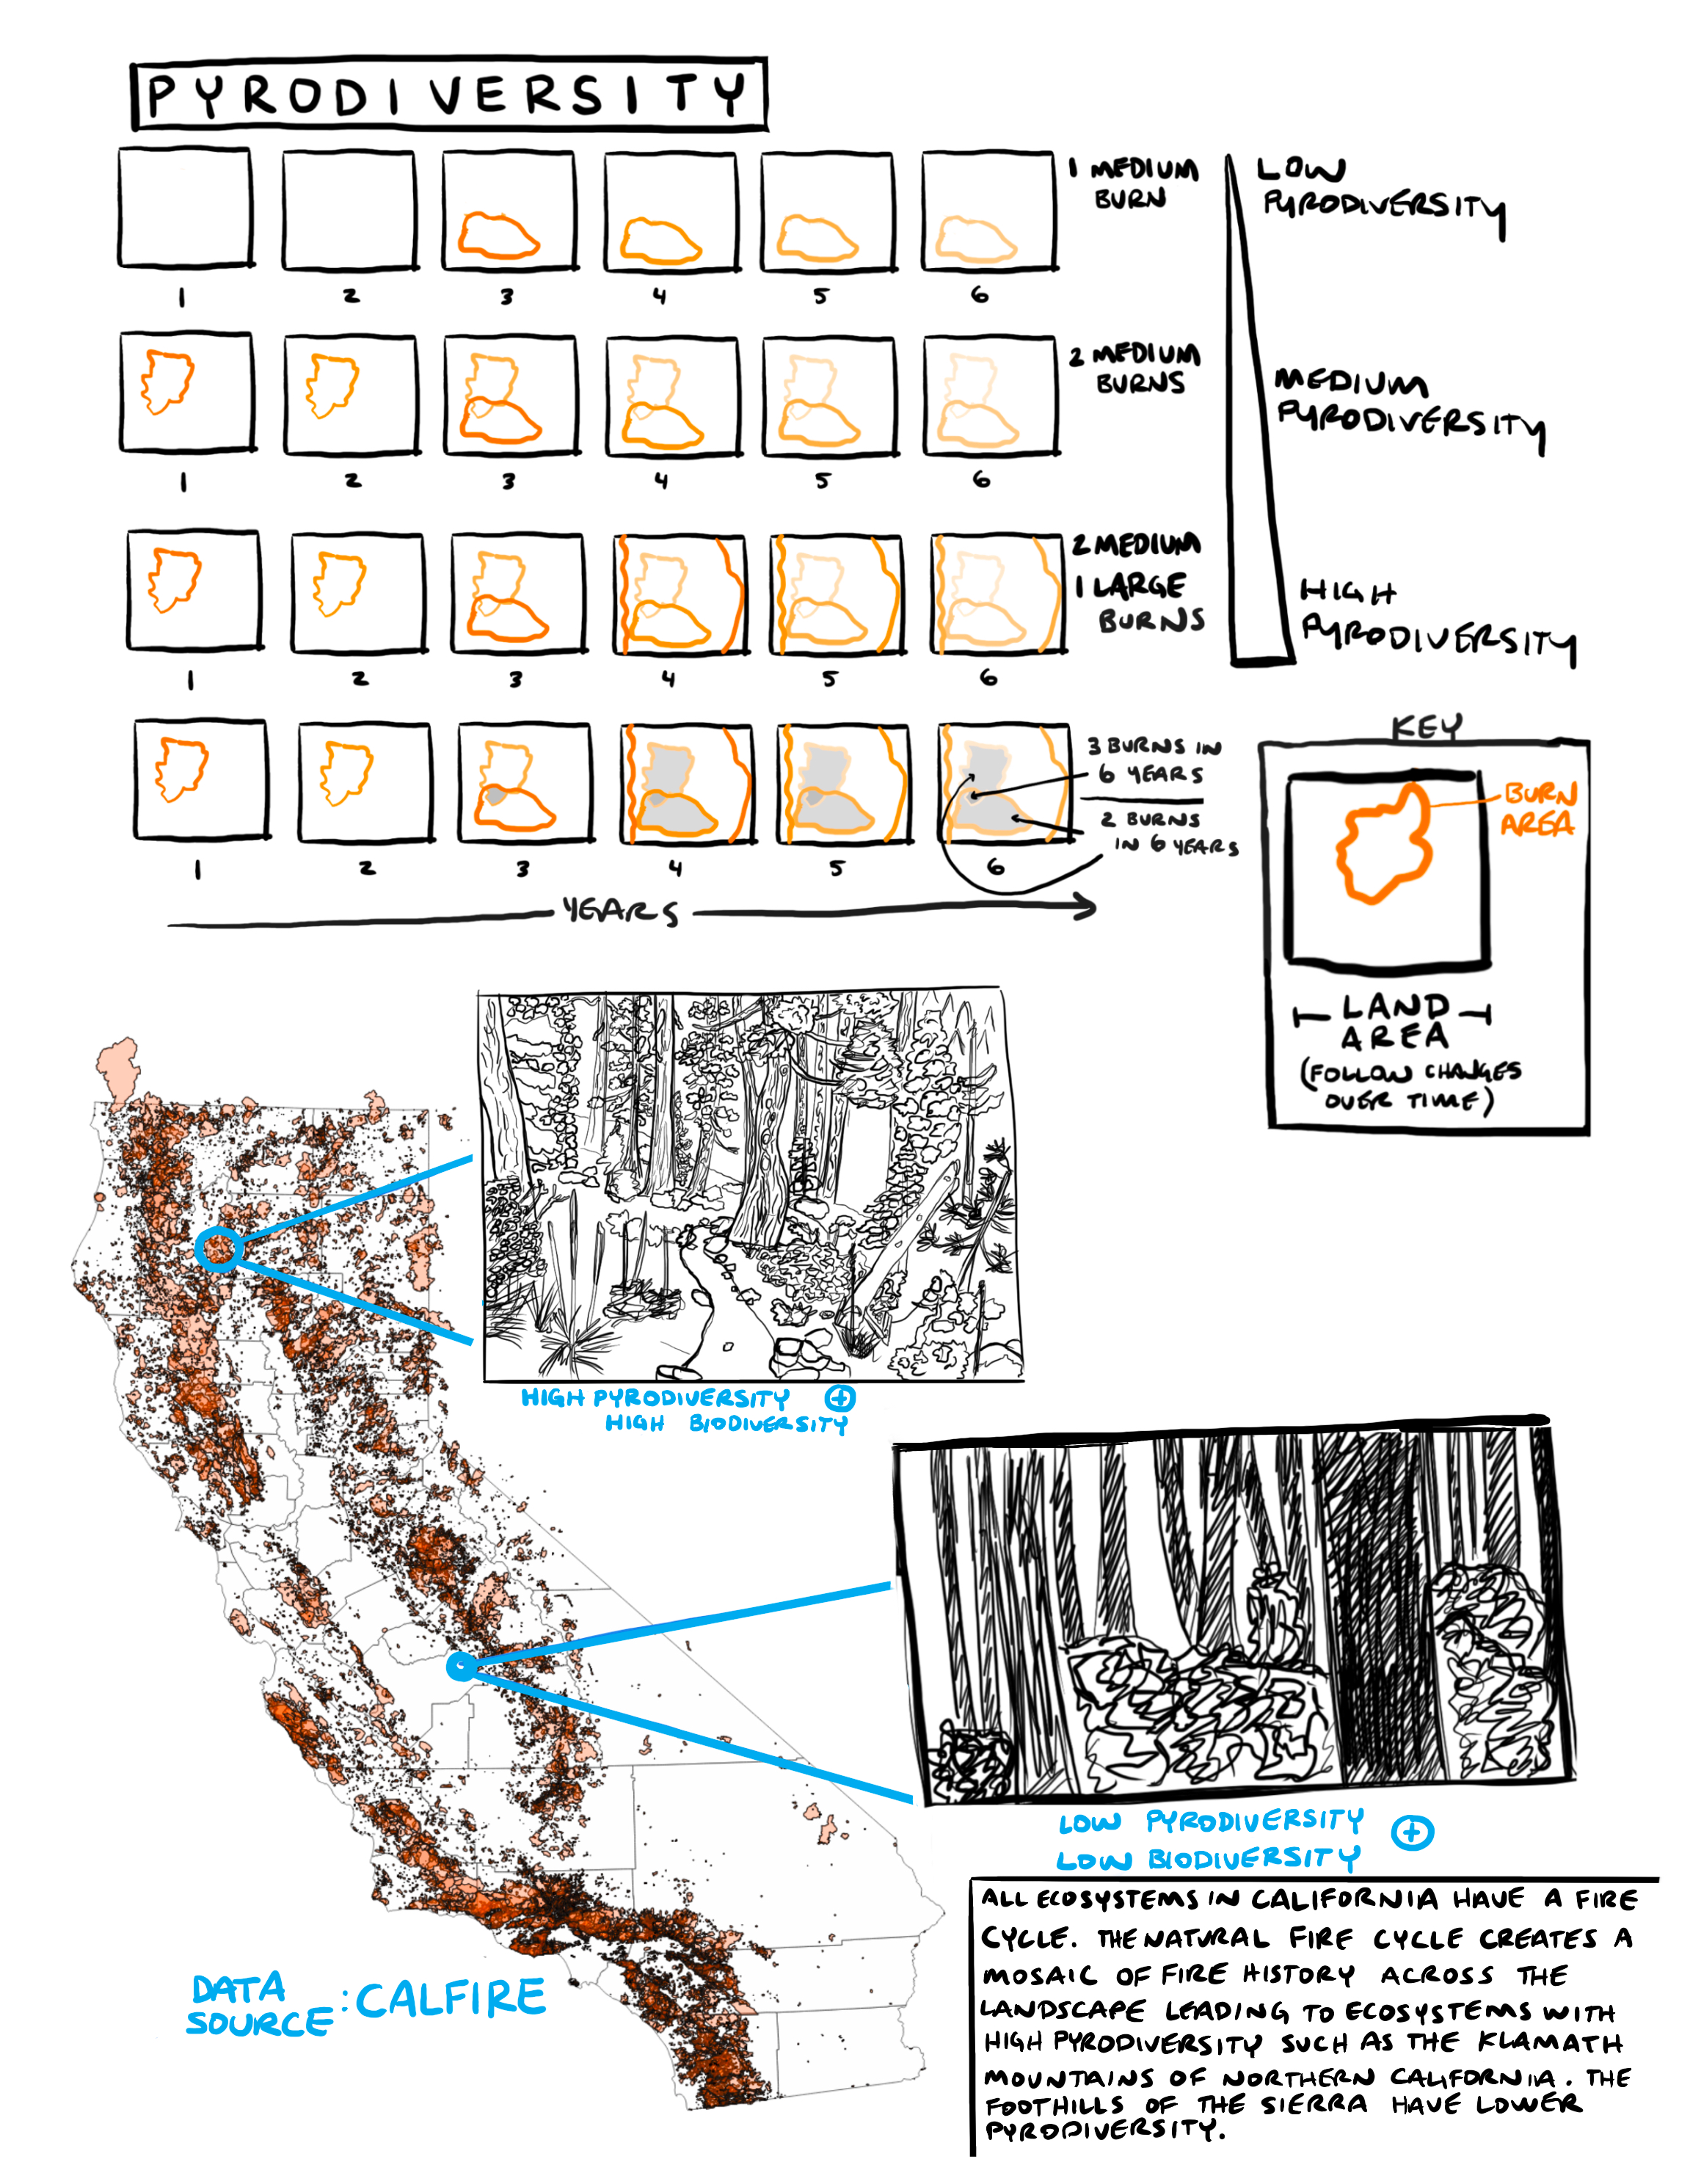 PYRODIVERSITY
1 MEDIUM
BURN
LOW
PYRODIVERSITY
1 2 3 4 5 6
2 MEDIUM
BURNS
MEDIUM
PYRODIVERSITY
1 2 3 4 5 6
2 MEDIUM
1 LARGE
BURNS
HIGH
PYRODIVERSITY
1 2 3 4 5 6
3 BURNS IN
6 YEARS
2 BURNS
IN 6 YEARS
1 2 3 4 5 6
YEARS
KEY
BURN
AREA
LAND
AREA
(FOLLOW CHANGES
OVER TIME)
HIGH PYRODIVERSITY +
HIGH BIODIVERSITY
LOW PYRODIVERSITY +
LOW BIODIVERSITY
DATA
SOURCE : CALFIRE
ALL ECOSYSTEMS IN CALIFORNIA HAVE A FIRE
CYCLE. THE NATURAL FIRE CYCLE CREATES A
MOSAIC OF FIRE HISTORY ACROSS THE
LANDSCAPE LEADING TO ECOSYSTEMS WITH
HIGH PYRODIVERSITY SUCH AS THE KLAMATH
MOUNTAINS OF NORTHERN CALIFORNIA. THE
FOOTHILLS OF THE SIERRA HAVE LOWER
PYRODIVERSITY.